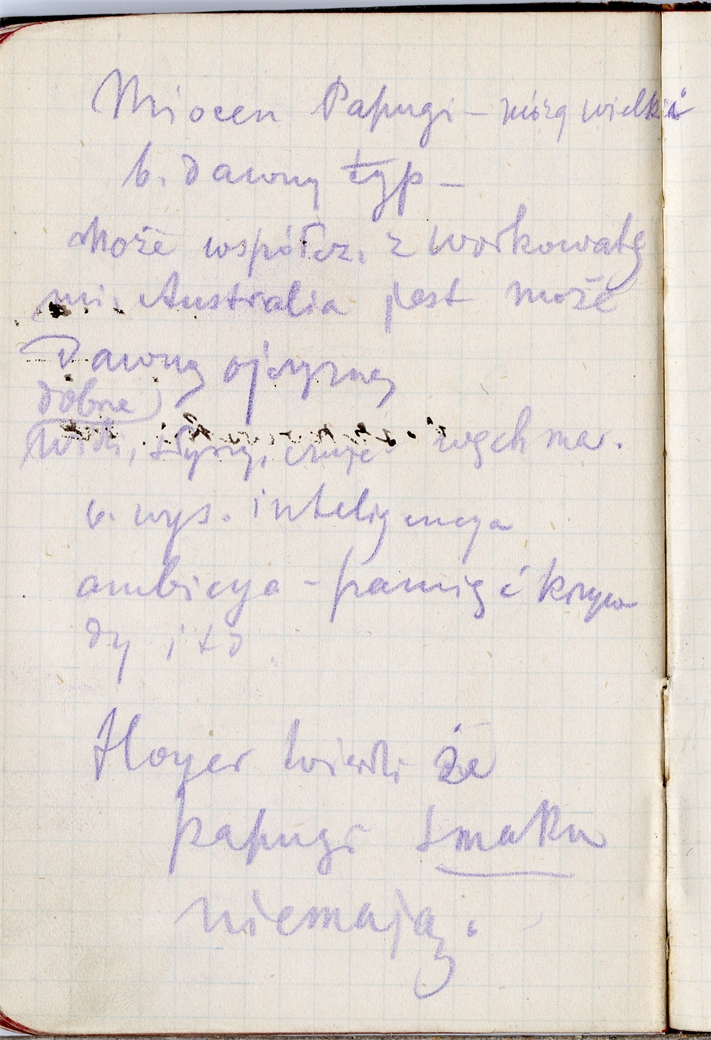 Miocen Papugi – mózg wielki
b. dawny typ –
może współcz. z workowatę
mi. Australia jest może
Dawną ojczyzną
dobrze
Widzi, słyszy, czuje węch ma.
b. wys. inteligencya
ambicya – pamięć krzyw
dy i t d
Hoyer twierdzi że
papugi smaku
niemają.